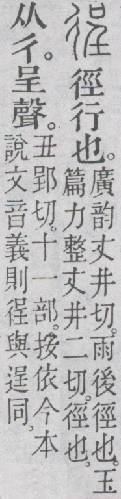 徎徑行也。廣韵丈井切。雨後徑也。玉
篇力整丈井二切。徑也。
从彳。呈聲。丑郢切。十一部。按依今本
說文音義則徎與逞同。